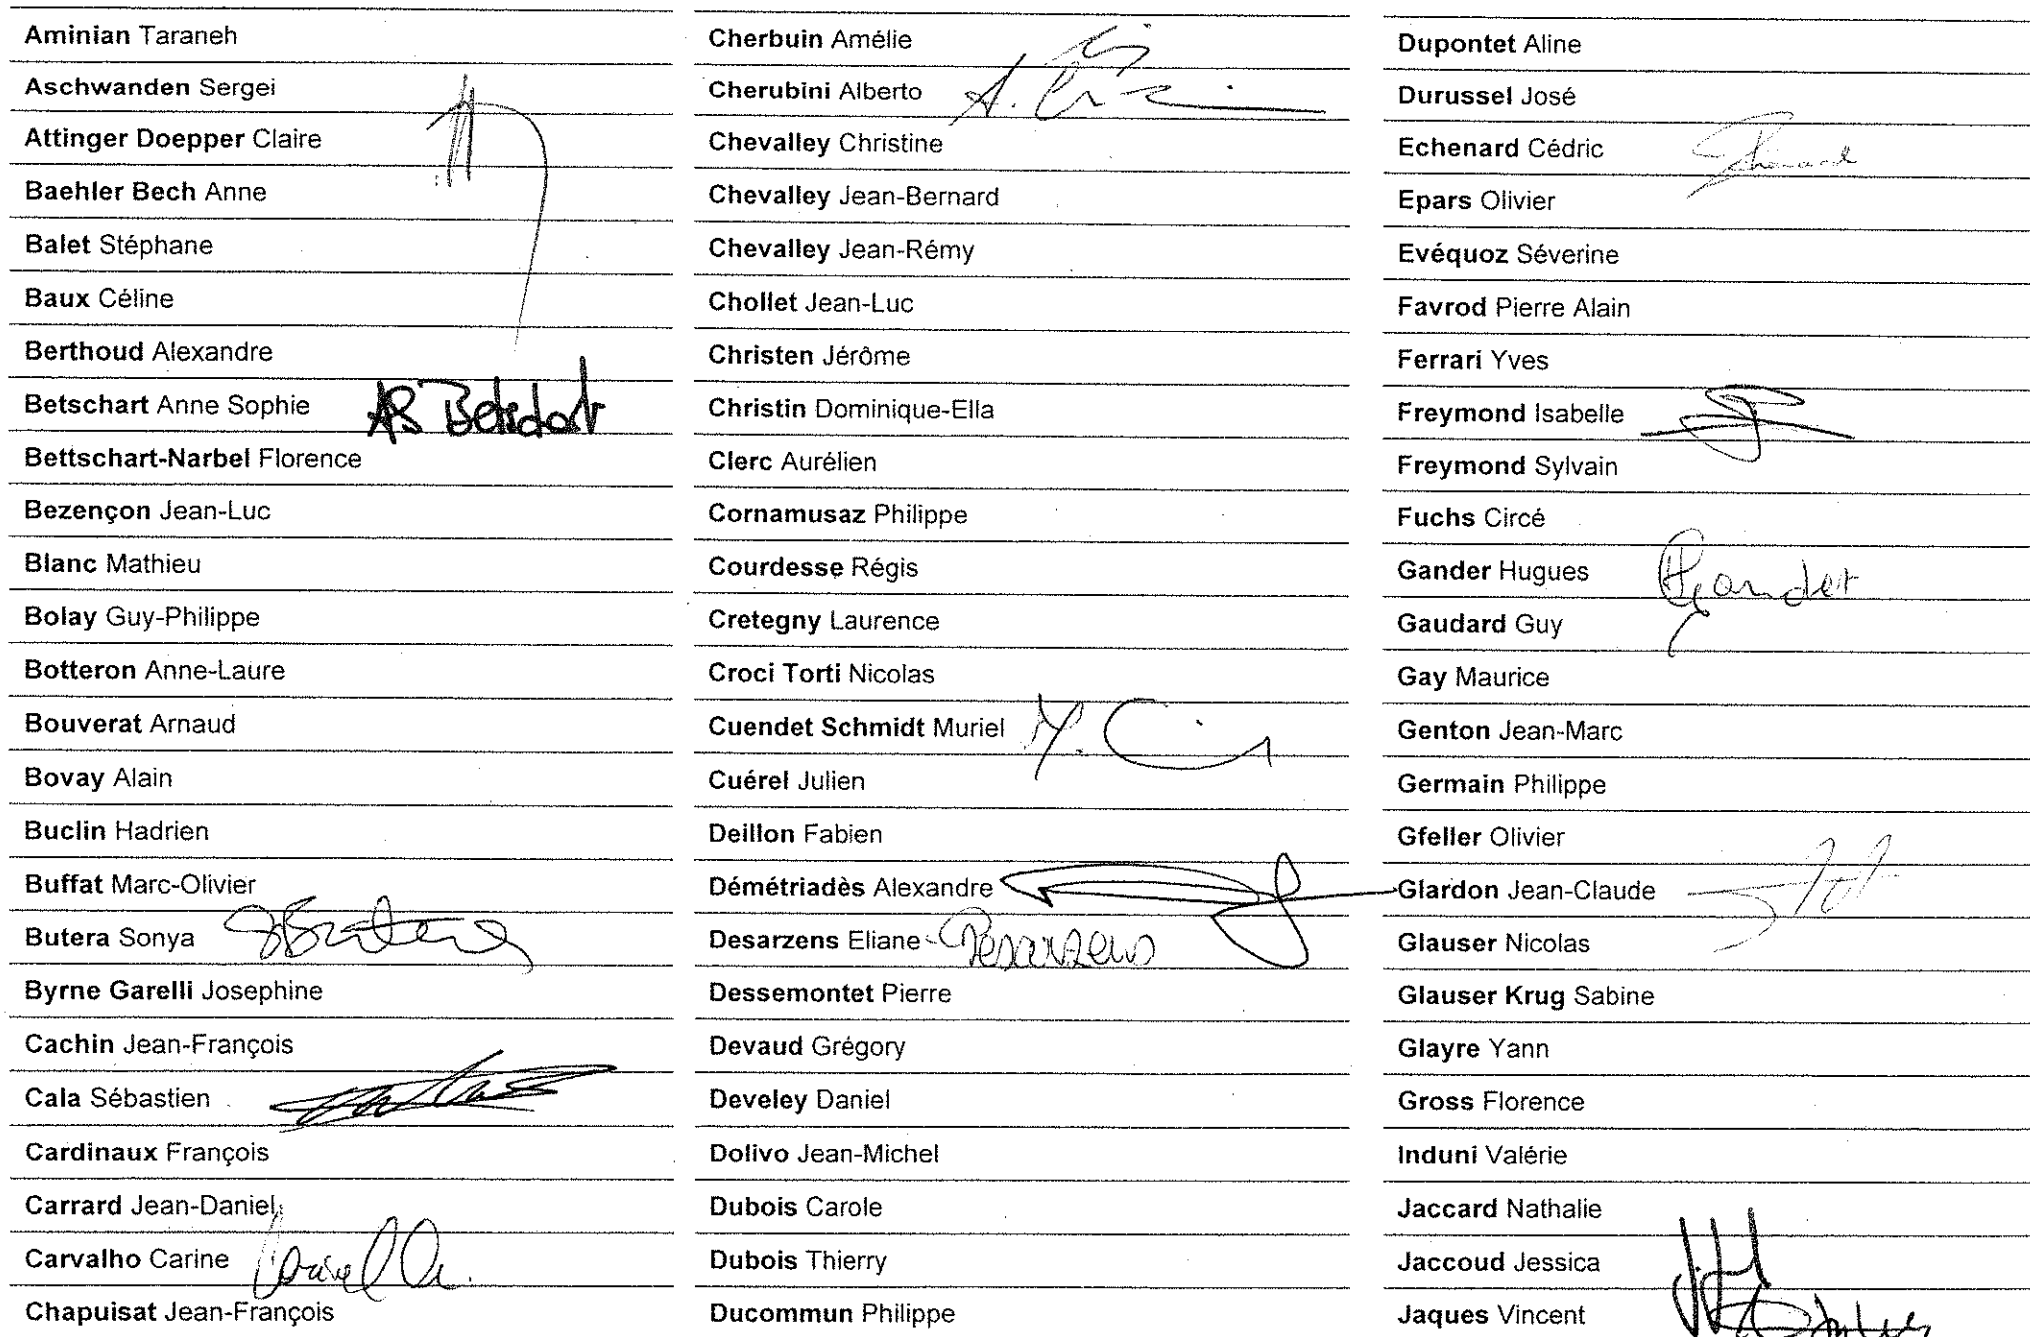 Aminian Taraneh
Aschwanden Sergei
Attinger Doepper Claire
Baehler Bech Anne
Balet Stéphane
Baux Céline
Berthoud Alexandre
Betschart Anne Sophie
Bettschart-Narbel Florence
Bezençon Jean-Luc
Blanc Mathieu
Bolay Guy-Philippe
Botteron Anne-Laure
Bouverat Arnaud
Bovay Alain
Buclin Hadrien
Buffat Marc-Olivier
Butera Sonya SButera
Byrne Garelli Josephine
Cachin Jean-François
Cala Sébastien
Cardinaux François
Carrard Jean-Daniel
Carvalho Carine
Chapuisat Jean-François
Cherbuin Amélie
Cherubini Alberto
Chevalley Christine
Chevalley Jean-Bernard
Chevalley Jean-Rémy
Chollet Jean-Luc
Christen Jérôme
Christin Dominique-Ella
Clerc Aurélien
Cornamusaz Philippe
Courdesse Régis
Cretegny Laurence
Croci Torti Nicolas
Cuendet Schmidt Muriel
Cuérel Julien
Deillon Fabien
Démétriadès Alexandre
Desarzens Eliane Desarzens
Dessemontet Pierre
Devaud Grégory
Develey Daniel
Dolivo Jean-Michel
Dubois Carole
Dubois Thierry
Ducommun Philippe
Dupontet Aline
Durussel José
Echenard Cédric
Epars Olivier
Evéquoz Séverine
Favrod Pierre Alain
Ferrari Yves
Freymond Isabelle
Freymond Sylvain
Fuchs Circé
Gander Hugues HGander
Gaudard Guy
Gay Maurice
Genton Jean-Marc
Germain Philippe
Gfeller Olivier
Glardon Jean-Claude
Glauser Nicolas
Glauser Krug Sabine
Glayre Yann
Gross Florence
Induni Valérie
Jaccard Nathalie
Jaccoud Jessica
Jaques Vincent